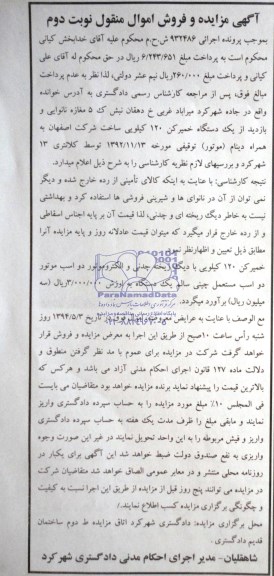 آگهی مزایده و فروش اموال منقول نوبت دوم
بموجب پرونده اجرائی ۹۳۲۴۸۶ ش.ح.م محکوم علیه آقای خدابخش کیانی
محکوم است به پرداخت مبلغ ۶/۲۴۳/۶۵۱ ریال در حق محکوم له آقای علی
کیانی و پرداخت مبلغ ۲۶۰/۰۰۰ریال نیم عشر دولتی، لذا نظر به عدم پرداخت
مبالغ فوق، پس از مراجعه کارشناس رسمی دادگستری به آدرس خوانده
واقع در جاده شهرکرد میرآباد غربی خ دهقان نبش ک ۵ مغازه نانوایی و
بازدید از یک دستگاه خمیرکن ۱۲۰ کیلویی ساخت شرکت اصفهان به
همراه دینام (موتور) توقیفی مورخه ۱۳۹۲/۱۱/۱۳ توسط کلانتری ۱۳
شهرکرد و بررسیهای لازم نظریه کارشناسی را به شرح ذیل اعلام میدارد.
نتیجه کارشناسی: با عنایت به اینکه کالای تأمینی از رده خارج شده و دیگر
نمی توان از آن در نانوای ها و شیرینی فروشی ها استفاده کرد و بهداشتی
نیست به خاطر دیگ ریخته ای و چدنی، لذا قیمت آن بر پایه اجناس اسقاطی
و از رده خارج قرار میگیرد که میتوان قیمت عادلانه روز و پایه مزایده آنرا
مطابق ذیل تعیین و اظهارنظر نمود.
خمیرکن ۱۲۰ کیلویی با دیگ ریخته چدنی و الکتروموتور دو اسب موتور
دو اسب مستعمل چینی سالم یک دستگاه به ارزش ۳/۰۰۰/۰۰۰ریال (سه
میلیون ریال) برآورد میگردد.
مع الوصف با عنایت به عرایض معروض مال فوق در تاریخ ۱۳۹۴/۵/۳ روز
شنبه رأس ساعت ۱۰صبح از طریق این اجرا به معرض مزایده و فروش قرار
خواهد گرفت شرکت در مزایده برای عموم با مد نظر گرفتن منطوق و
دلالت ماده ۱۲۷ قانون اجرای احکام مدنی آزاد می باشد و هرکس که
بالاترین قیمت را پیشنهاد نماید برنده مزایده خواهد بود متقاضیان می بایست
فی المجلس ۱۰٪ مبلغ مورد مزایده را به حساب سپرده دادگستری واریز
نمایند و مابقی مبلغ را ظرف مدت یک هفته به حساب سپرده دادگستری
واریز و فیش مربوطه را به این واحد تحویل نمایند در غیر این صورت وجوه
واریزی به نفع صندوق دولت ضبط خواهد شد این آگهی برای یکبار در
روزنامه محلی منتشر و در معابر عمومی الصاق خواهد شد متقاضیان شرکت
در مزایده می توانند پنج روز قبل از مزایده از طریق این اجرا نسبت به کیفیت
و چگونگی برگزاری مزایده کسب اطلاع نمایند./
محل برگزاری مزایده: دادگستری شهرکرد اتاق مزایده ط دوم ساختمان
قدیم دادگستری.
شاهقلیان- مدیر اجرای احکام مدنی دادگستری شهرکرد
ParsNamadData